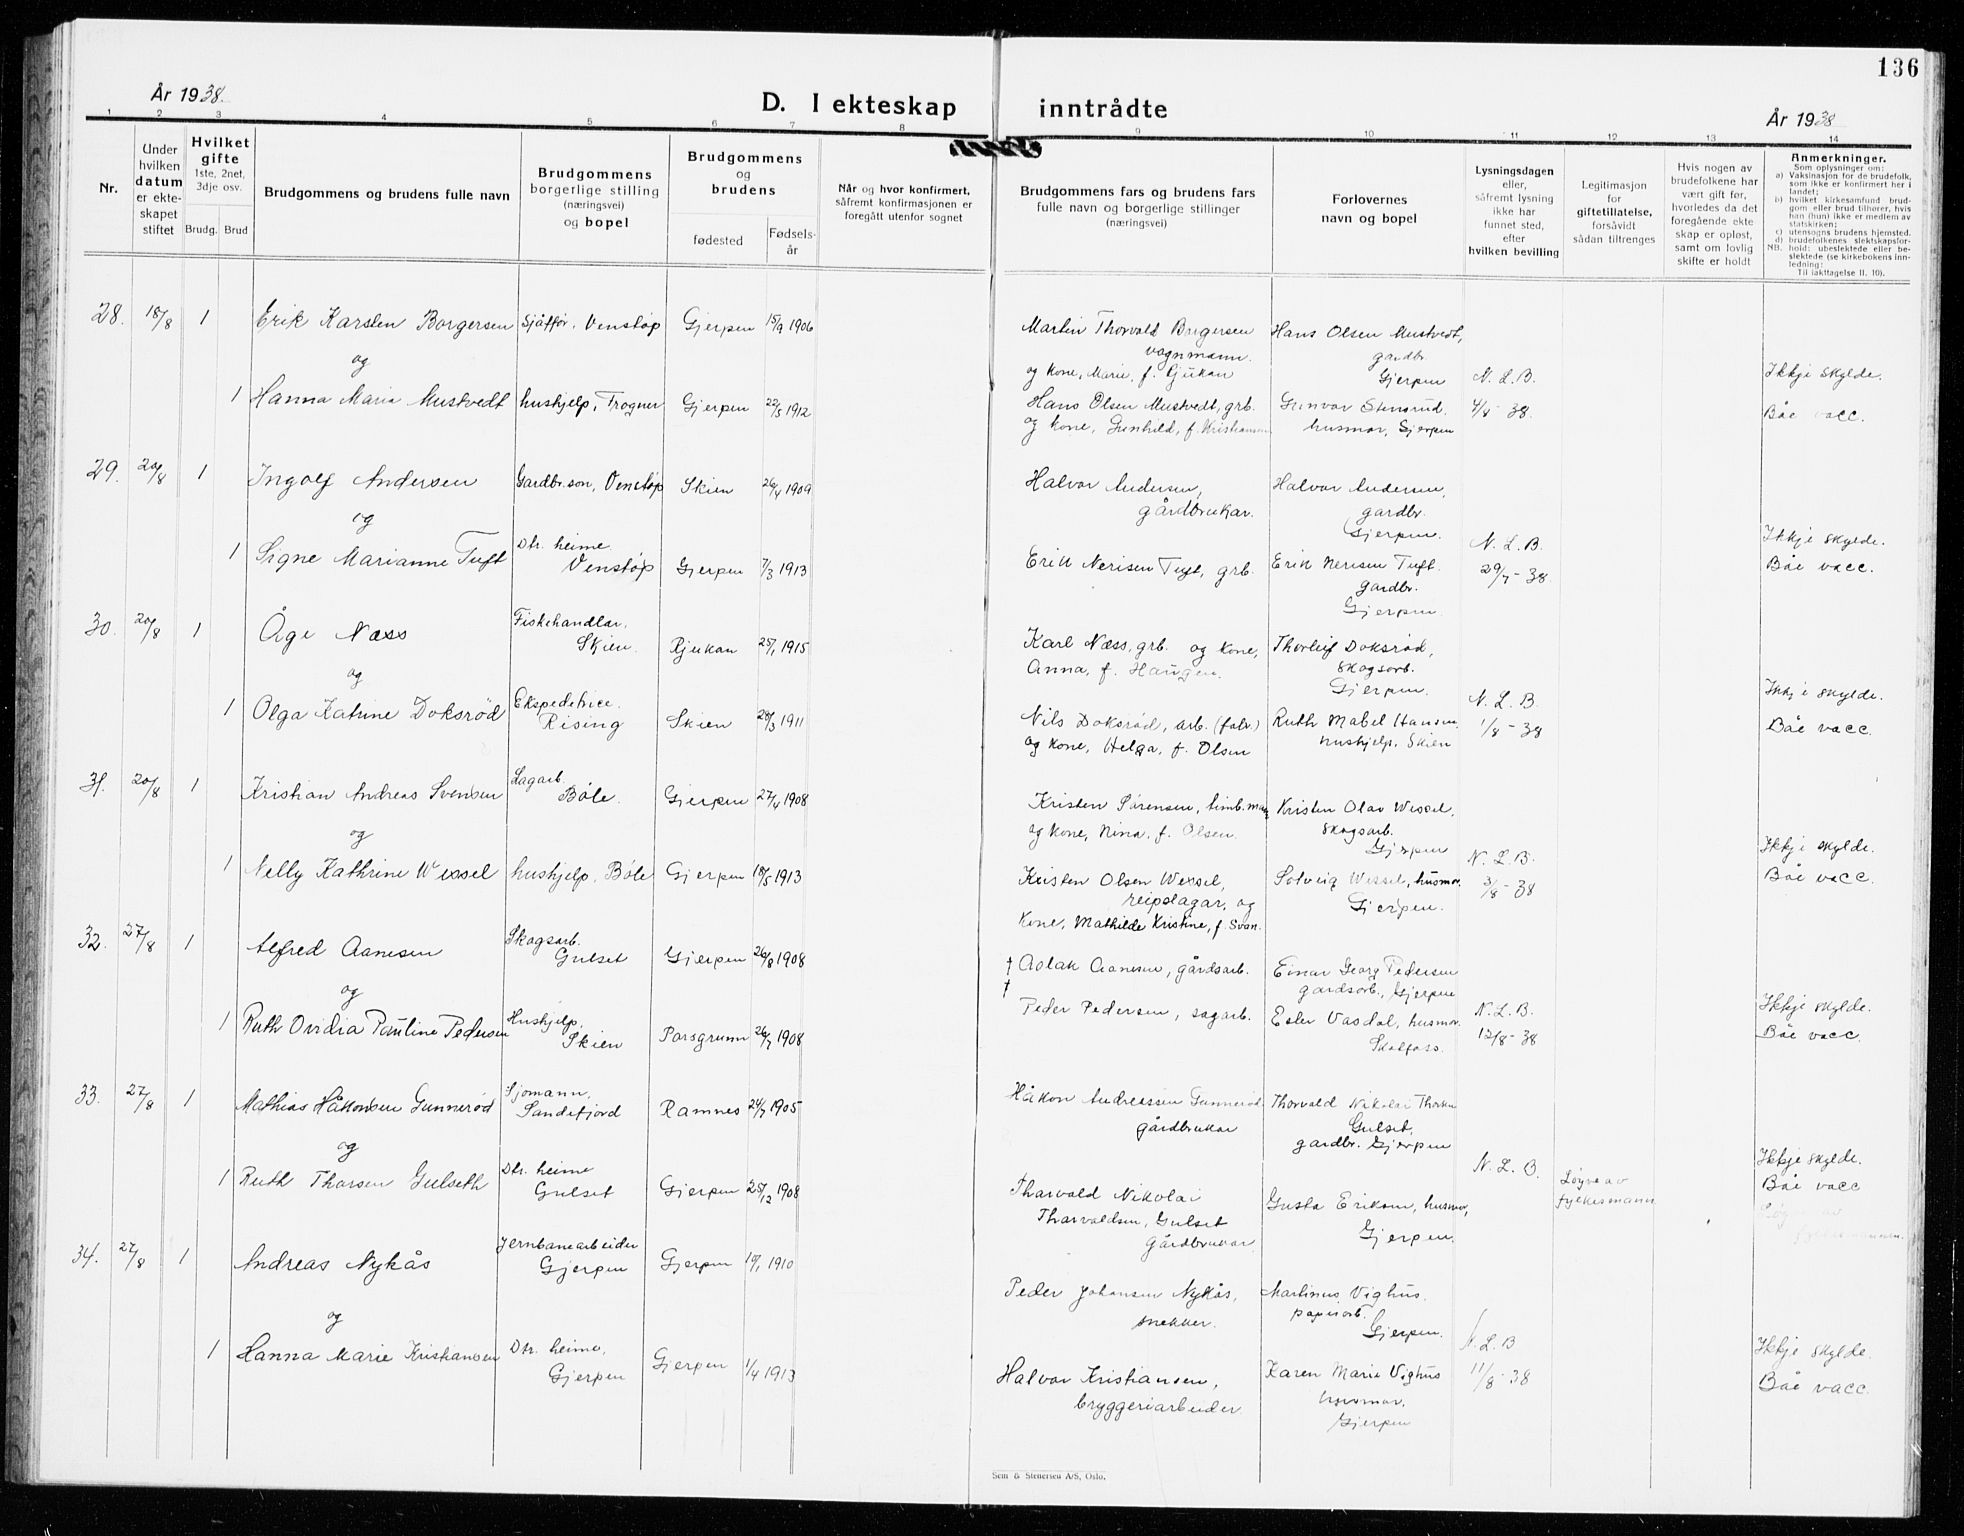 136
År 1938.
D. I ekteskap inntrådte
År 1938
1 2 3 4 5 6 7 8 9 10 11 12 13 14
Nr.
Under hvilken datum er ekteskapet stiftet
Hvilket gifte 1ste, 2net, 3dje osv.
Brudg. Brud
Brudgommens og brudens fulle navn
Brudgommens borgerlige stilling (næringsvei) og bopel
Brudgommens og brudens
fødested
Fødselsår
Når og hvor konfirmert, såfremt konfirmasjonen er foregått utenfor sognet
Brudgommens fars og brudens fars fulle navn og borgerlige stillinger (næringsvei)
Forlovernes navn og bopel
Lysningsdagen eller, såfremt lysning ikke har funnet sted, efter hvilken bevilling
Legitimasjon for giftetillatelse, forsåvidt sådan tiltrenges
Hvis nogen av brudefolkene har vært gift før, hvorledes da det foregående ekteskap er opløst, samt om lovlig skifte er holdt
Anmerkninger.
Som oplysninger om:
a) Vaksinasjon for de brudefolk, som ikke er konfirmert her i landet;
b) hvilket kirkesamfund brudgom eller brud tilhører, hvis han (hun) ikke er medlem av statskirken;
c) utensogns brudens hjemsted.
d) brudefolkenes slektskapsforhold: ubeslektede eller beslektede (se kirkebokens innledning:
NB.
Til iakttagelse II. 10).
28. 18/8 1 Erik Karsten Borgersen Sjåffør, Venstøp Gjerpen 15/9 1906
Martin Thorvald Borgersen vognmann og kone, Marie, f. Rjukan
Hans Olsen Mustvedt, gardbr. Gjerpen
og
1 Hanna Maria Mustvedt hushjelp, Trogner Gjerpen 22/5 1912
Hans Olsen Mustvedt, grb. og kone, Gunhild, f. Kristiansen
Gunvor Stensrud. husmor, Gjerpen
N. L. B. 4/8 - 38.
Ikkje skylde. Båe vacc.
29. 20/8 1 Ingolf Andersen Gardbr.son, Venstøp Skien 26/4 1909
Halvor Andersen, gårdbrukar.
Halvor Andersen, gardbr. Gjerpen.
og
1 Signe Marianne Tuft Dtr. heime Venstøp Gjerpen 7/3 1913
Erik Nerisen Tuft, grb.
Erik Nerisen Tuft. gardbr. Gjerpen
N. L. B. 29/7 - 38
Ikkje skylde. Båe vacc.
30. 20/8 1 Åge Næss Fiskehandlar, Skien. Rjukan 25/1 1915
Karl Næss, grb. og kone, Anna, f. Haugen.
Thorleif Doksrød, skogsarb. Gjerpen.
og
1 Olga Katrine Doksrød Ekspeditrice. Rising Skien 28/3 1911
Nils Doksrød, arb. (falv.) og kone, Helga, f. Olsen
Ruth Mabel Hansen hushjelp, Skien
N. L. B. 1/8 - 38
Ikkje skylde. Båe vacc.
31. 20/8 1 Kristian Andreas Svensen Lagarb. Bøle. Gjerpen 27/4 1908
Kristen Sørensen, timb.mann og kone, Nina, f. Olsen.
Kristen Olav Wessel, skogsarb. Gjerpen
og
1 Nelly Kathrine Wessel hushjelp, Bøle Gjerpen 18/5 1913
Kristen Olsen Wessel, reipslagar, og kone, Mathilde Kristine, f. Svan.
Solveig Wessel, husmor. Gjerpen.
N. L. B. 3/8 - 38
Ikkje skylde. Båe vacc.
32. 27/8 1 Alfred Aanesen Skogsarb. Gulset Gjerpen 26/8 1908
† Aslak Aanesen, gårdsarb.
Einar Georg Pedersen gardsarb., Gjerpen
og
1 Ruth Ovidia Pauline Pedersen Hushjelp. Skien Porsgrunn 26/7 1908
† Peder Pedersen, sagarb.
Ester Vasdal, husmor. Skotfoss.
N. L. B. 12/8 - 38
Ikkje skylde. Båe vacc.
33. 27/8 1 Mathias Håkonsen Gunnerød Sjømann, Sandefjord Ramnes 24/7 1905
Håkon Andreassen Gunnerød gårdbrukar
Thorvald Nikolai Thorsen Gulset, gardbr. Gjerpen
og
1 Ruth Thorsen Gulseth Dtr. heime Gulset Gjerpen 25/2 1908
Thorvald Nikolai Thorvaldsen, Gulset gårdbrukar
Gusta Eriksen, husmor, Gjerpen.
N. L. B. Løyve av fylkesmann
Ikkje skylde. Båe vacc
34. 27/8 1 Andreas Nykås Jernbanearbeider Gjerpen Gjerpen 10/1 1910
Peder Johansen Nykås, snekker.
Martinus Vighus. papirarb. Gjerpen.
og
1 Hanna Marie Kristiansen Dtr. heime, Gjerpen Gjerpen 1/4 1913
Halvor Kristiansen, bryggeriarbeider
Karen Marie Vighus husmor, Gjerpen
N. L. B 11/8 - 38
Ikkje skylde. Båe vacc.
Sem & Stenersen A/S, Oslo.